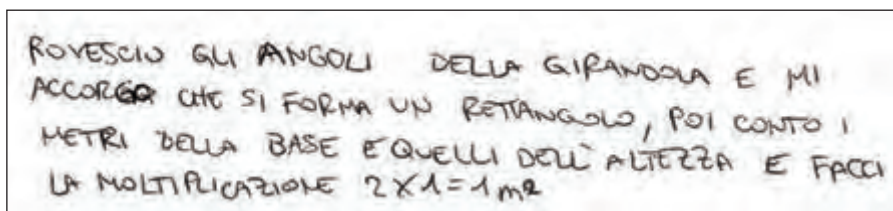 ROVESCIO GLI ANGOLI DELLA GIRANDOLA E MI
ACCORGO CHE SI FORMA UN RETTANGOLO, POI CONTO I
METRI DELLA BASE E QUELLI DELL'ALTEZZA E FACCI
LA MOLTIPLICAZIONE 2X1=1m2